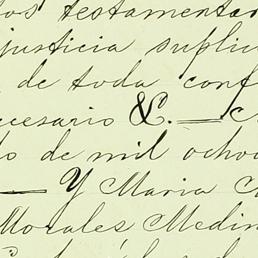 los testamentar
justicia suplic
de toda conf
cesario &. —
do de mil ocho
— Y Maria
Morales Medin